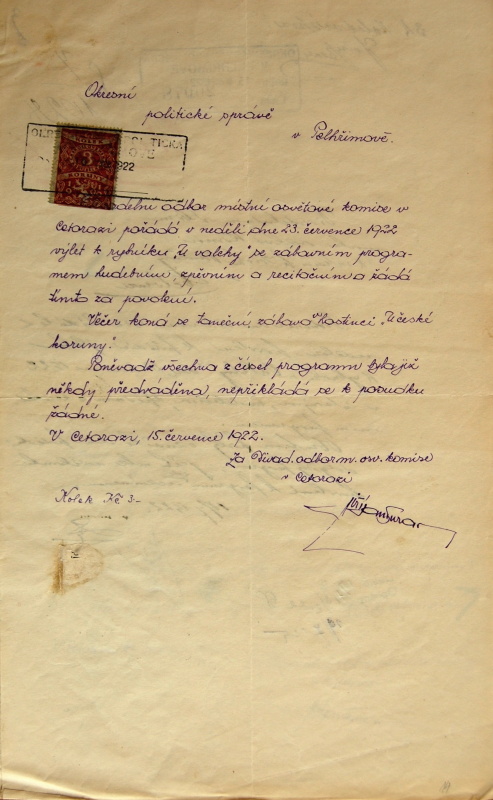 Okresní
politické správě
v Pelhřimově.
KOLEK
3
KORUNY
1922
odbor místní osvětové komise v
Cetorazi pořádá v neděli, dne 23. července 1922
výlet k rybníku „U valchy" se zábavním progra-
mem hudebním, zpěvním a recitačním a žádá
tímto za povolení.
Večer koná se taneční zábava v hostinci „U české
koruny."
Poněvadž všechna z čísel programu byla již
někdy předváděna, nepřikládá se k posudku
žádné.
V Cetorazi, 15. července 1922.
Za Divad. odbor m. osv. komise
v Cetorazi
Kolek Kč 3-